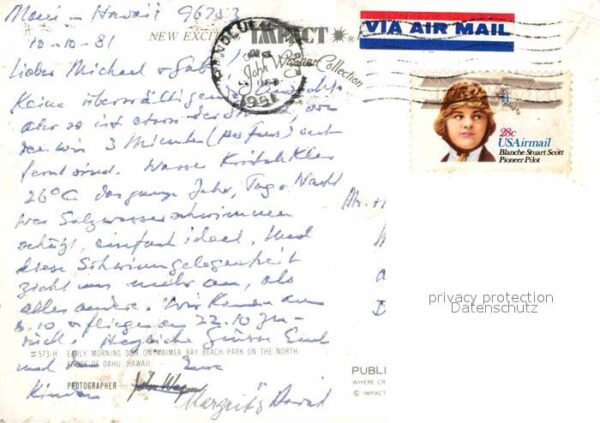 Maui in Hawaii 96753
10-10-81
NEW EXCIT IMPACT
John Wagner Collection
HONOLULU
1981
VIA AIR MAIL
28c
USAirmail
Blanche Stuart Scott
Pioneer Pilot
Lieber Michael + Gabi!
Keine überwältigende
aber so ist etwa der Strand, von
dem wir 3 Minuten (per fuss) ent
fernt sind. Wasser Kristallklar
26°C das ganze Jahr, Tag + Nacht
Wer Salzwasserschwimmen
schätzt, einfach ideal. Und
diese Schwimmgelegenheit
zieht uns mehr an, als
alles andre. Wir kamen am
8.10 + fliegen am 22.10 zu-
rück. Herzliche Grüsse Euch
und Eure
Kinder
#573-H EARLY MORNING SUN ON WAIMEA BAY BEACH PARK ON THE NORTH
SHORE OF OAHU, HAWAII
PHOTOGRAPHER John Wagner
Margrit + David
PUBLI
WHERE CR
© IMPACT
privacy protection
Datenschutz